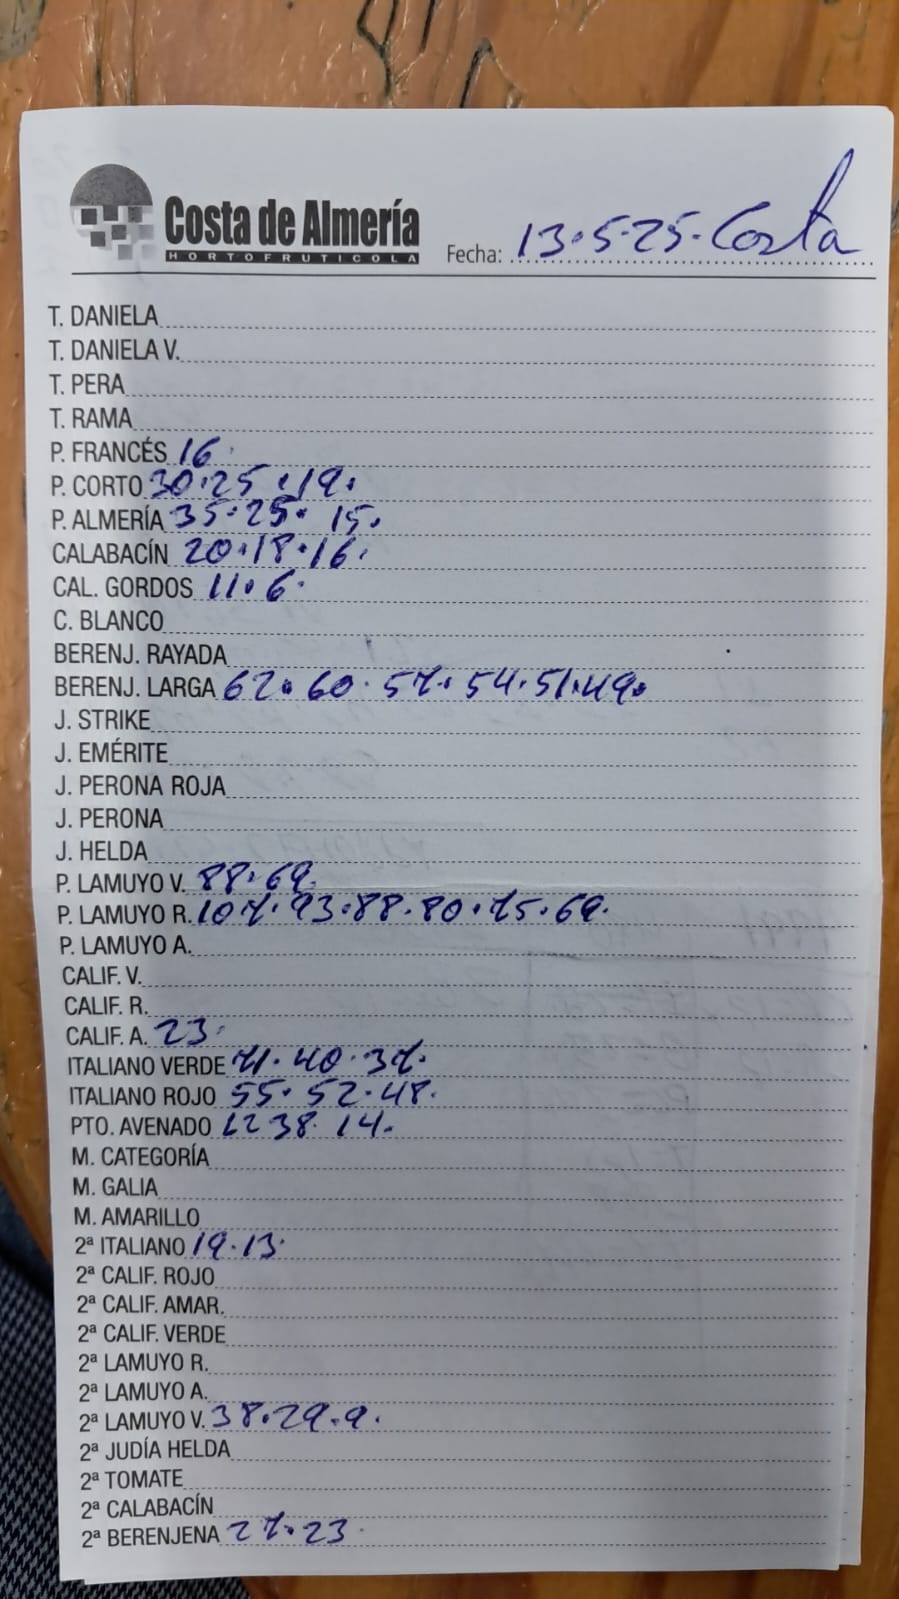 Costa de Almería
HORTOFRUTICOLA
Fecha: 13.5.25. Costa
T. DANIELA
T. DANIELA V.
T. PERA
T. RAMA
P. FRANCÉS 16.
P. CORTO 30.25.19.
P. ALMERÍA 35.25.15.
CALABACÍN 20.18.16.
CAL. GORDOS 11.6.
C. BLANCO
BERENJ. RAYADA
BERENJ. LARGA 62.60.57.54.51.49.
J. STRIKE
J. EMÉRITE
J. PERONA ROJA
J. PERONA
J. HELDA
P. LAMUYO V. 88.69.
P. LAMUYO R. 107.93.88.80.75.69.
P. LAMUYO A.
CALIF. V.
CALIF. R.
CALIF. A. 23.
ITALIANO VERDE 40.37.
ITALIANO ROJO 55.52.48.
PTO. AVENADO 38.14.
M. CATEGORÍA
M. GALIA
M. AMARILLO
2ª ITALIANO 19.13.
2ª CALIF. ROJO
2ª CALIF. AMAR.
2ª CALIF. VERDE
2ª LAMUYO R.
2ª LAMUYO A.
2ª LAMUYO V. 38.29.9.
2ª JUDÍA HELDA
2ª TOMATE
2ª CALABACÍN
2ª BERENJENA 27.23.